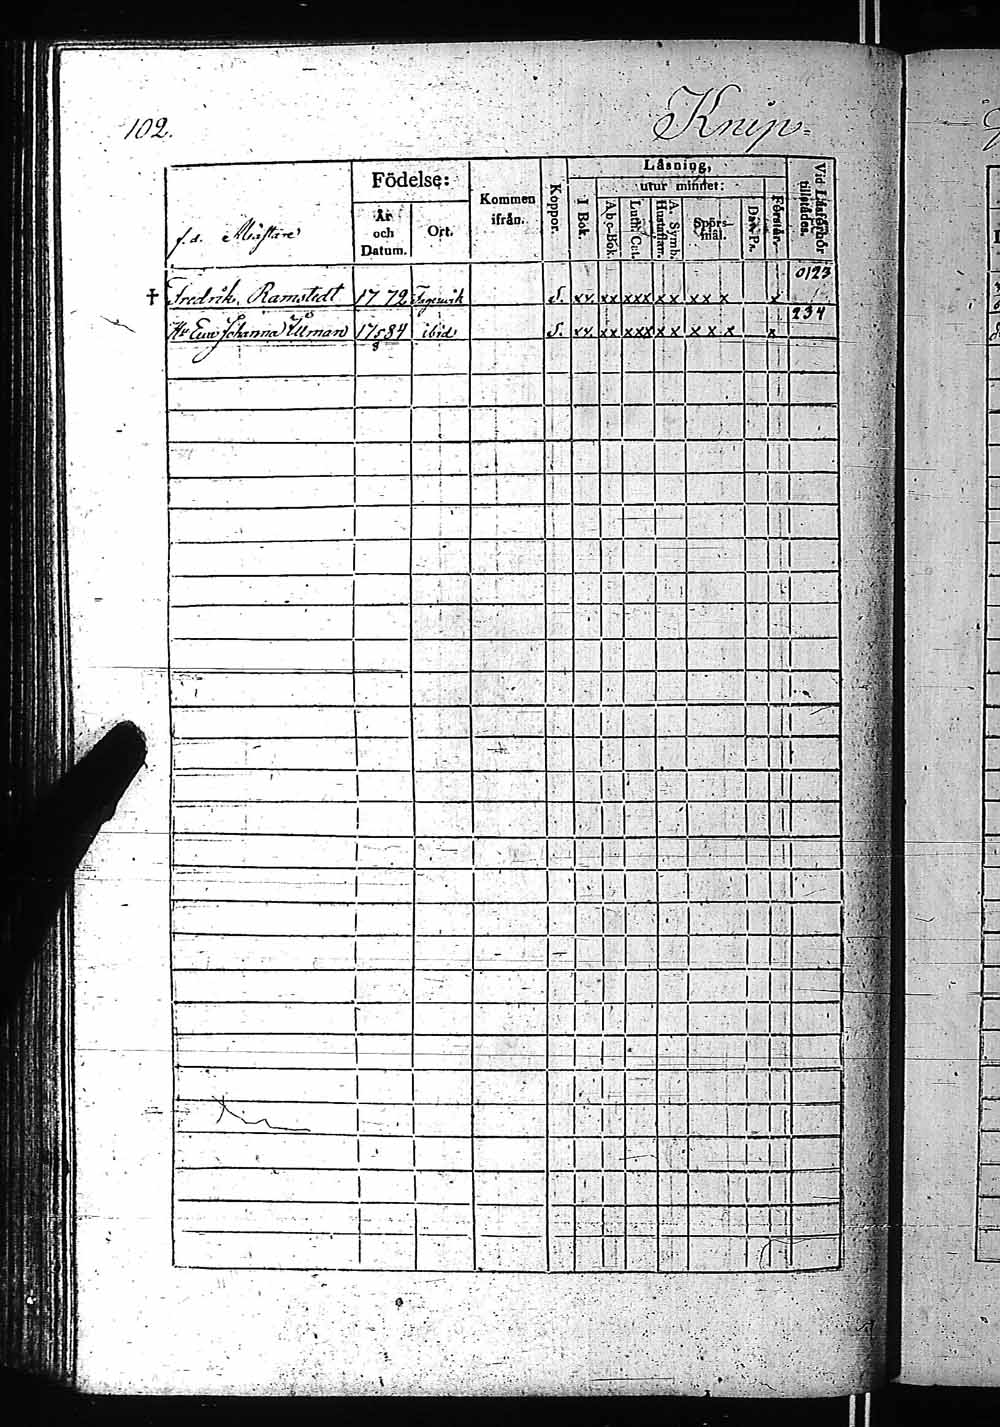 102.
Knip=
Födelse:
Kommen ifrån.
Koppor.
Läsning,
utur minnet:
I Bok.
Ab c-Bok.
Luth. Cat.
A. Symb. Hustaflan.
Spörsmål.
Dav. Ps.
Förstår.
Vid Läsförhör tillstädes.
År och Datum.
Ort.
f.d. Mästare
† Fredrik Ramstedt 1772 Fagervik S. xx xx xxx xx xx x x 0123
Hu Eva Johanna Ullman 1784 ibid S. xx xx xxx xx x x x x 234